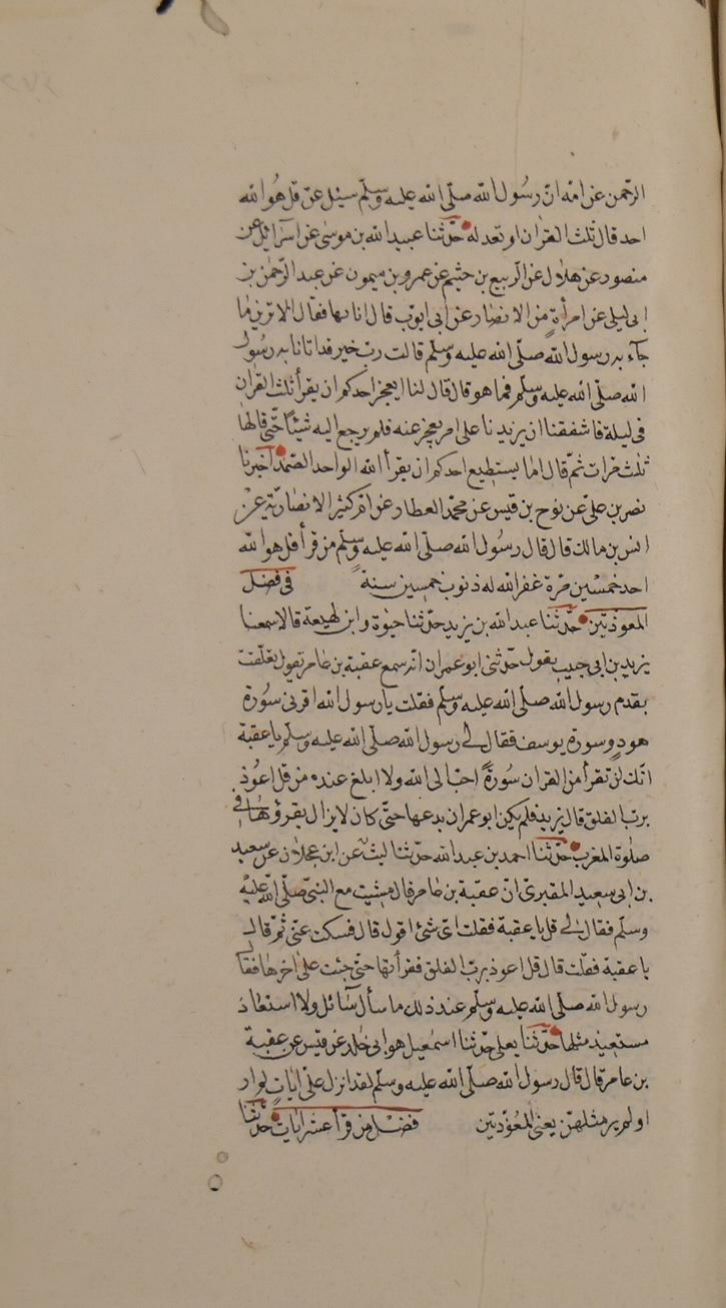 الرّحمن عن امّه انّ رسُول الله صلّى الله عليه وسلّم سئل عن قل هُو الله
احد قال ثلث القران او تعدله حدّثنا عبيد الله بن موسى عن اسرآئيل عن
منصور عن هلال عن الرّبيع بن خثيم عن عمرو بن ميمون عن عبد الرّحمن بن
ابى ليلى عن امرأةٍ من الانصار عن ابى ايّوب قال اتاها فقال الا ترين ما
جآء به رسول الله صلّى الله عليه وسلّم قالت ربّ خير قد اتانا به رسُول
الله صلّى الله عليه وسلّم فما هو قال قال لنا ايعجز احدكم ان يقرأ ثلث القران
فى ليلة فاشفقنا ان يريدنا على امر يعجز عنه فلم يرجع اليه شيئًا حتّى قالها
ثلث مرات ثمّ قال اما يستطيع احدكم ان يقرأ الله الواحد الصّمد اخبرنا
نصر بن علىّ عن نوح بن قيس عن محمّد العطار عن امّ كثير الانصاريّة عن
انس بن مالك قال قال رسُول الله صلّى الله عليه وسلّم من قرأ قل هو الله
احد خمسْين مرّة غفر الله له ذنوب خمسين سنة فى فضل
المعوذتين حدّثنا عبد الله بن يزيد حدّثنا حيوة وابن لهيعة قالا سمعنا
يزيد بن ابى حبيب يقول حدّثنى ابو عمران انّه سمع عقبة بن عامر يقول تعلّقت
بقدم رسول الله صلّى الله عليه وسلّم فقلت يا رسول الله اقرئنى سُورة
هودٍ وسورة يوسف فقال لى رسول الله صلّى الله عليه وسلّم يا عقبة
انّك لن تقرأ من القران سُورةً احبّ الى الله ولا ابلغ عنده من قل اعُوذ
بربّ الفلق قال يزيد فلم يكن ابو عمران يدعها حتّى كان لا يزال يقرؤها فى
صلوة المغرب حدّثنا احمد بن عبد الله حدّثنا ليث عن ابن عجلان عن سعيد
بن ابى سعيد المقبرى انّ عقبة بن عامر قال مشيت مع النبىّ صلّى الله عليه
وسلّم فقال لى قل يا عقبة فقلت اىّ شئ اقول قال فسكت عنّى ثمّ قال
يا عقبة فقلت قال قل اعوذ بربّ الفلق فقرأتها حتّى جئت على اخرها فقال
رسول الله صلّى الله عليه وسلّم عند ذلك ما سأل سآئل ولا استعاذ
مستعيذ مثلها حدّثنا يعلى حدّثنا اسمعيل هو ابى خلد عن قيس عن عقبة
بن عامر قال قال رسول الله صلّى الله عليه وسلّم لقد انزل علىّ ايات لم ار
او لم ير مثلهنّ يعنى المعوّذتين فضْل من قرأ عشر ايات حدّثنا